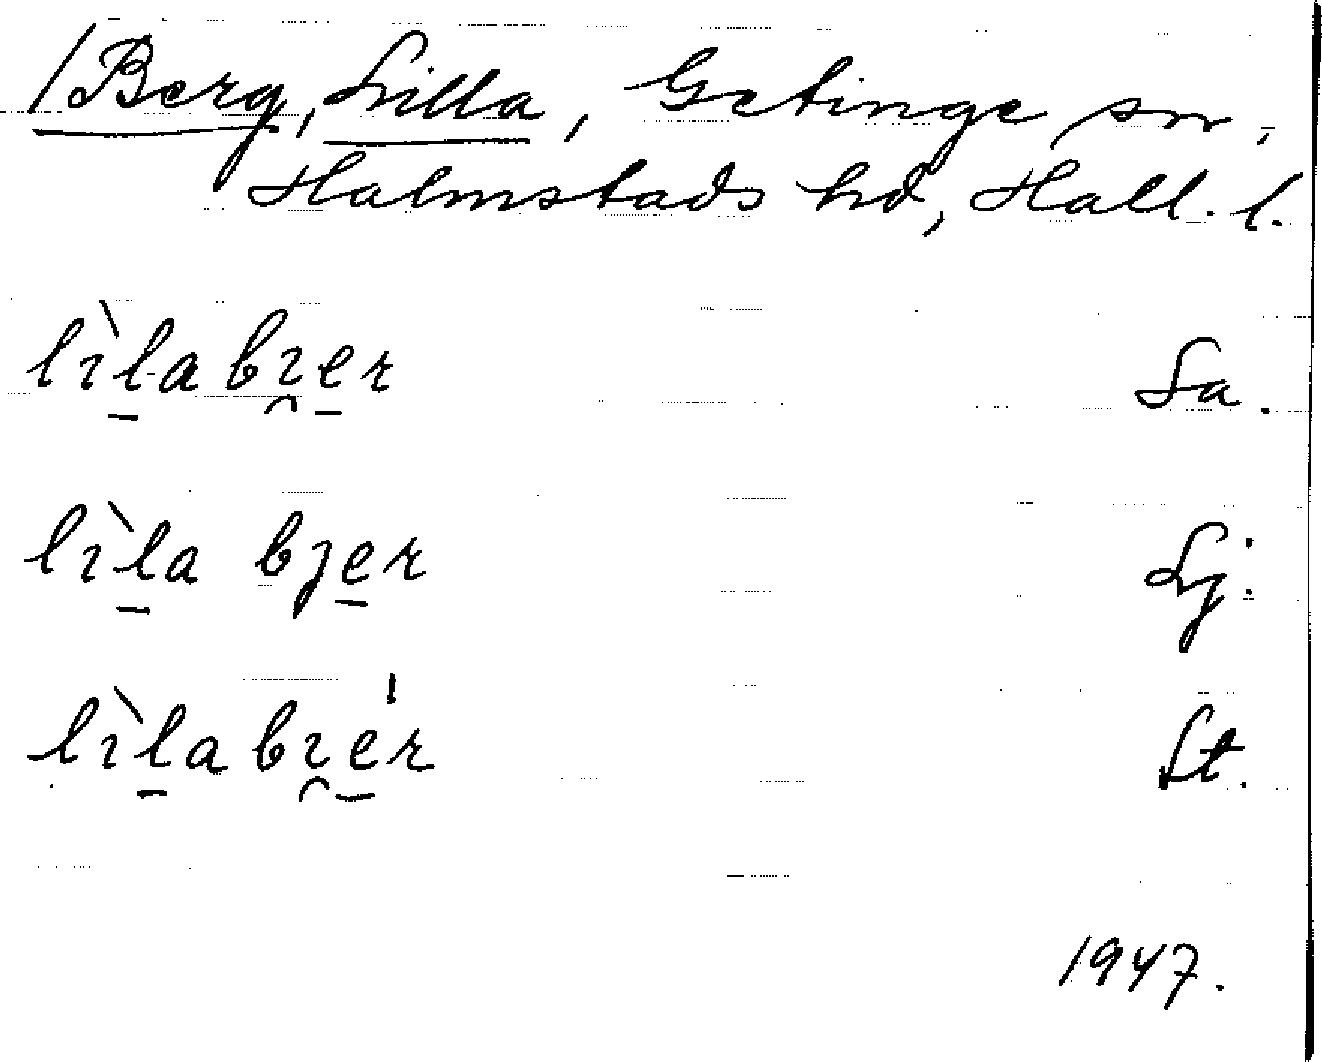 /Berg, Lilla, Getinge sn,
Halmstads hd, Hall. l.
lìla bı̯er Sa.
lìla bȷer Lj.
lìla bı̯ér St.
1947.